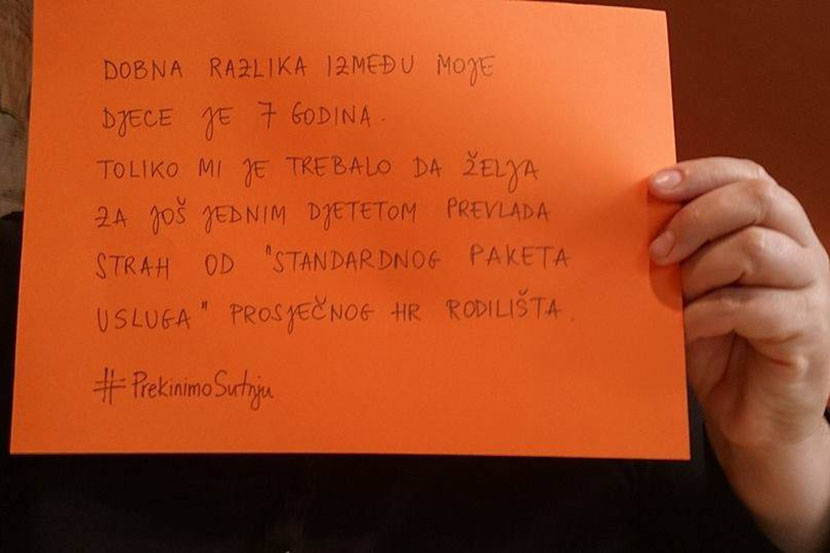 DOBNA RAZLIKA IZMEĐU MOJE
DJECE JE 7 GODINA.
TOLIKO MI JE TREBALO DA ŽELJA
ZA JOŠ JEDNIM DJETETOM PREVLADA
STRAH OD "STANDARDNOG PAKETA
USLUGA" PROSJEČNOG HR RODILIŠTA.
#PrekinimoŠutnju